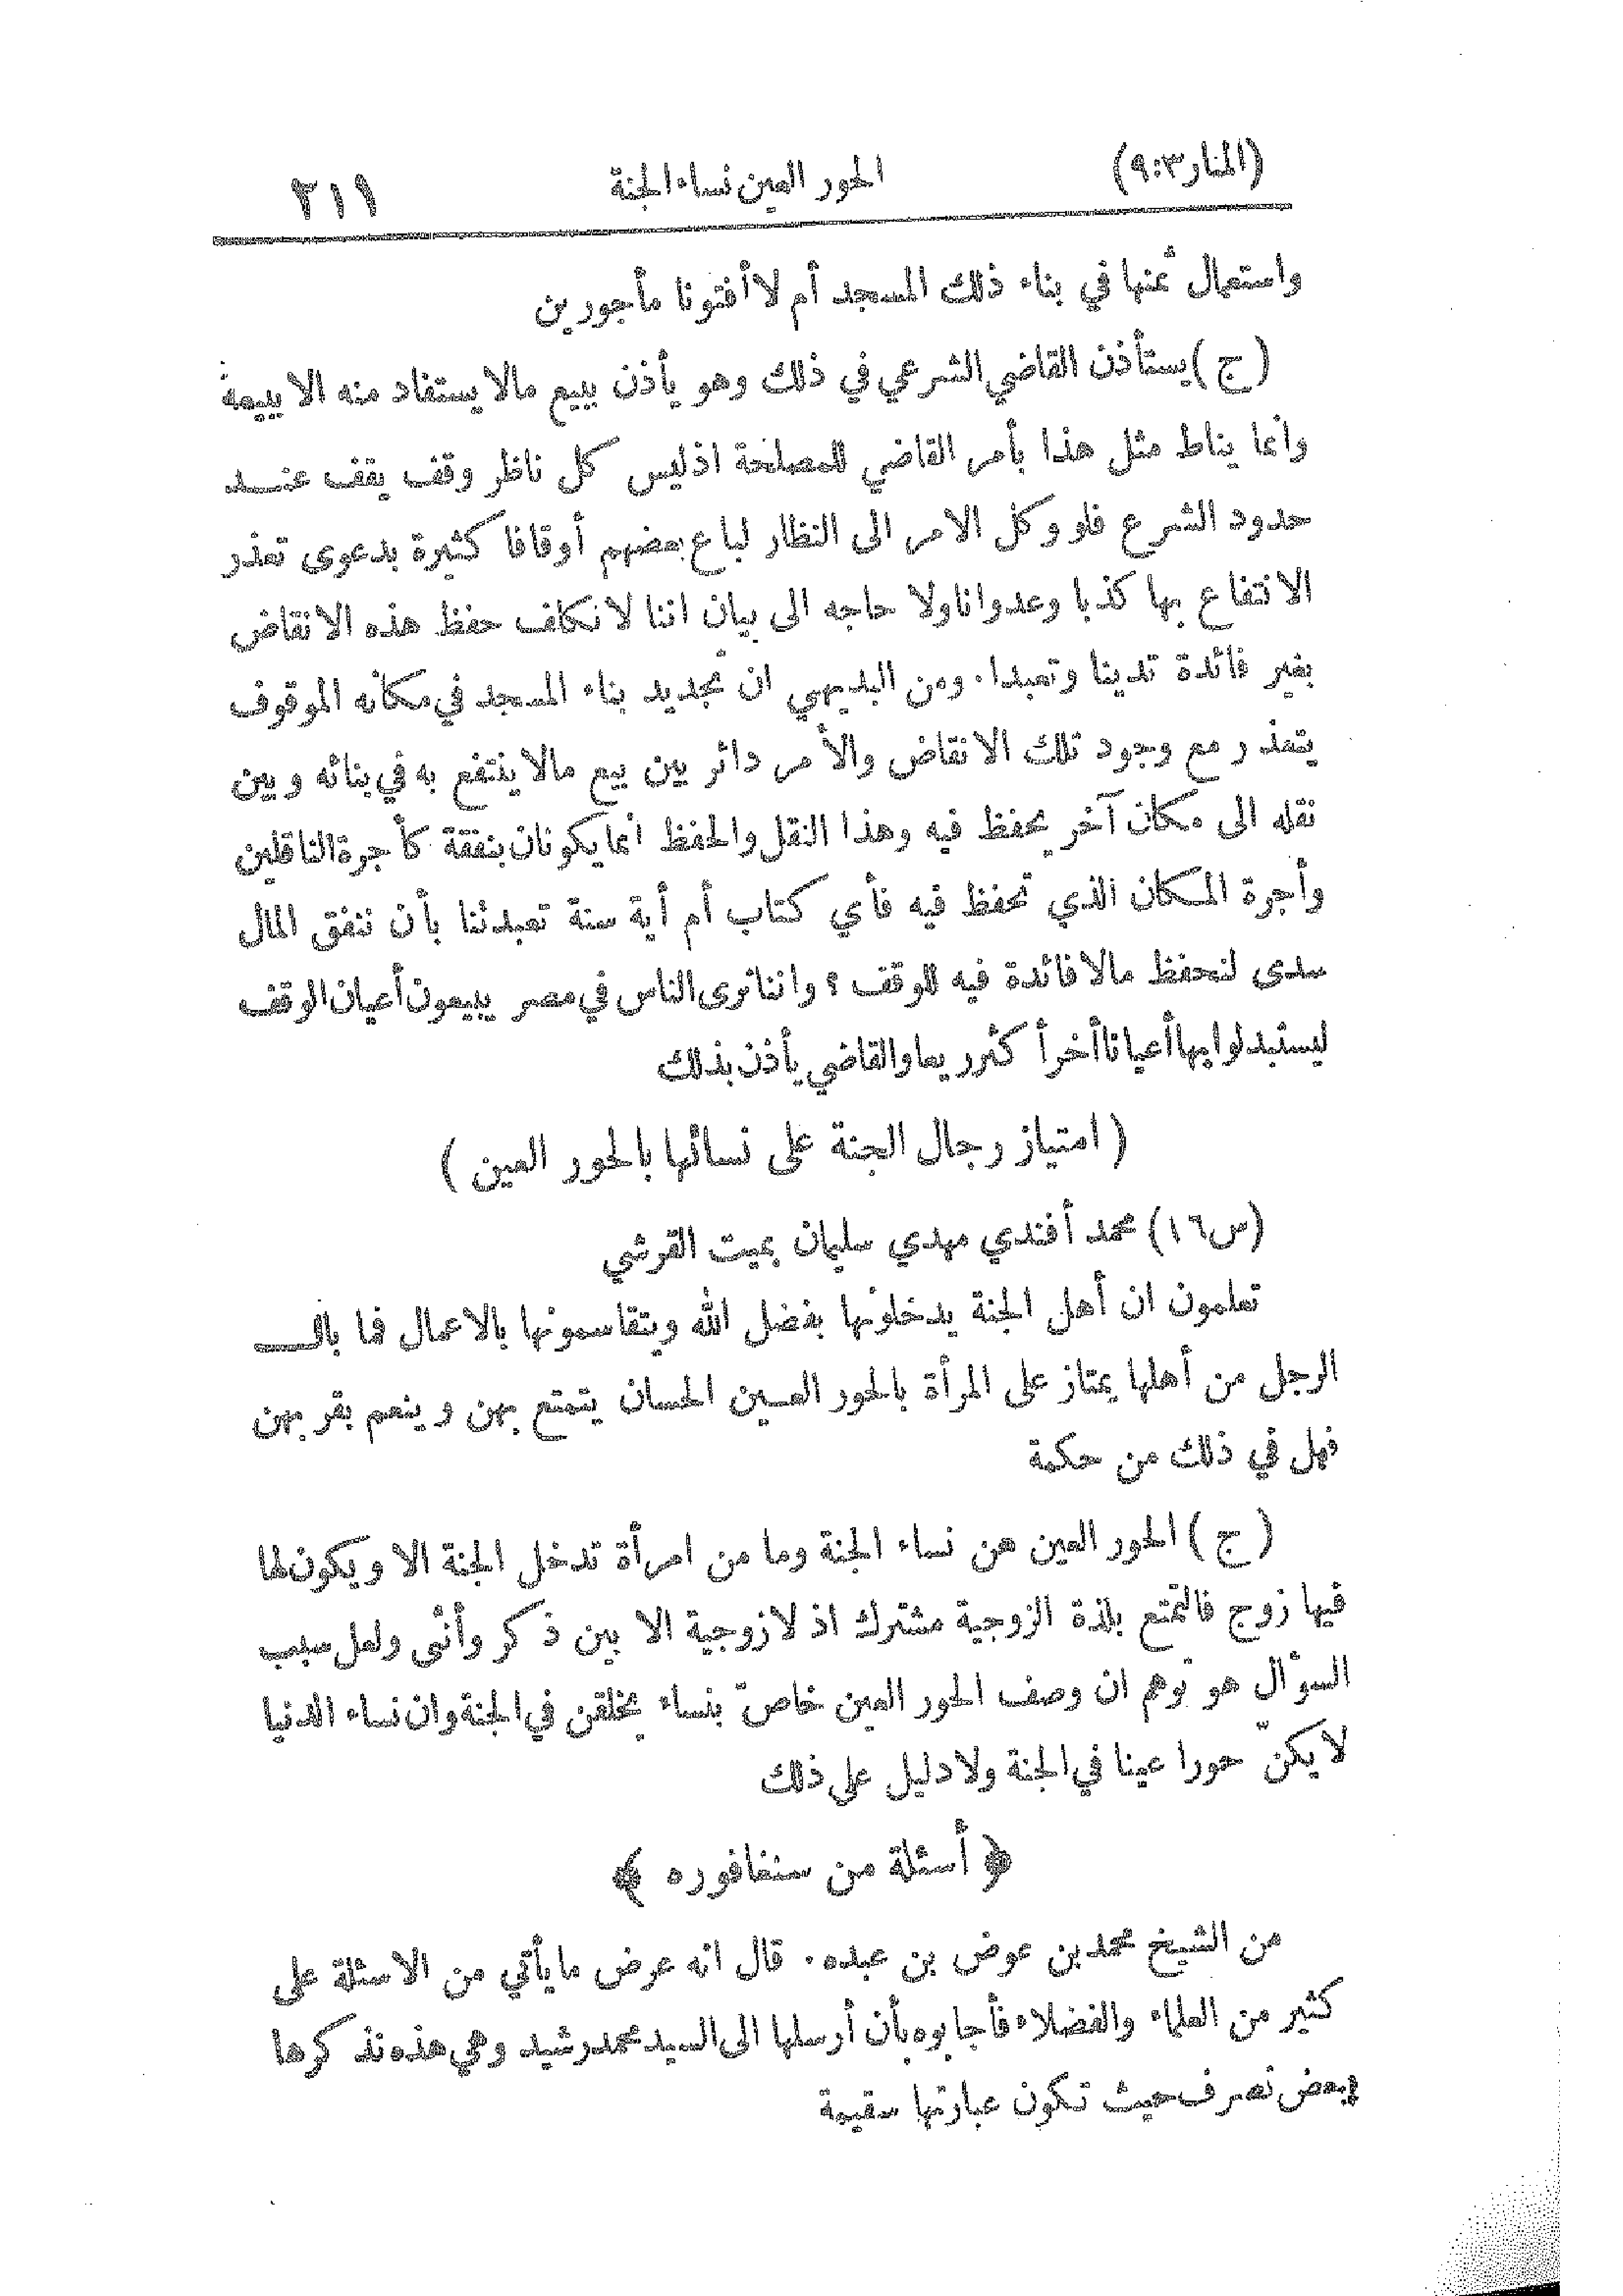 (المنار ٣:٩) الحور العين نساء الجنة ٢١١
واستعمال ثمنها في بناء ذلك المسجد أم لا أفتونا مأجورين
(ج) يستأذن القاضي الشرعي في ذلك وهو يأذن ببيع مالا يستفاد منه الا ببيعه
وانما يناط مثل هذا بأمر القاضي للمصلحة اذ ليس كل ناظر وقف يقف عند
حدود الشرع فلو وكل الامر الى النظار لباع بعضهم أوقافا كثيرة بدعوى تعذر
الانتفاع بها كذبا وعدوانا ولا حاجه الى بيان اننا لا نكلف حفظ هذه الانقاض
بغير فائدة تدينا وتعبدا. ومن البديهي ان تجديد بناء المسجد في مكانه الموقوف
يتعذر مع وجود تلك الانقاض والأمر دائر بين بيع مالا ينتفع به في بنائه وبين
نقله الى مكان آخر يحفظ فيه وهذا النقل والحفظ انما يكونان بنفقة كأجرة الناقلين
وأجرة المكان الذي تحفظ فيه فأي كتاب أم أية سنة تعبدتنا بأن ننفق المال
سدى لنحفظ مالا فائدة فيه للوقف ؟ واننا نرى الناس في مصر يبيعون أعيان الوقف
ليستبدلوا بها أعيانا أخر أكثر ريعا والقاضي يأذن بذلك
( امتياز رجال الجنة على نسائها بالحور العين )
(س١٦) محمد أفندي مهدي سليمان بميت القرشي
تعلمون ان أهل الجنة يدخلونها بفضل الله ويتقاسمونها بالاعمال فما بال
الرجل من أهلها يمتاز على المرأة بالحور العين الحسان يتمتع بهن وينعم بقربهن
فهل في ذلك من حكمة
(ج) الحور العين هن نساء الجنة وما من امرأة تدخل الجنة الا ويكون لها
فيها زوج فالتمتع بلذة الزوجية مشترك اذ لا زوجية الا بين ذكر وأنثى ولعل سبب
السؤال هو توهم ان وصف الحور العين خاصّ بنساء يخلقن في الجنة وان نساء الدنيا
لا يكنّ حورا عينا في الجنة ولا دليل على ذلك
﴿ أسئلة من سنغافوره ﴾
من الشيخ محمد بن عوض بن عبده. قال انه عرض ما يأتي من الاسئلة على
كثير من العلماء والفضلاء فأجابوه بأن أرسلها الى السيد محمد رشيد وهي هذه نذكرها
ببعض تصرف حيث تكون عبارتها سقيمة